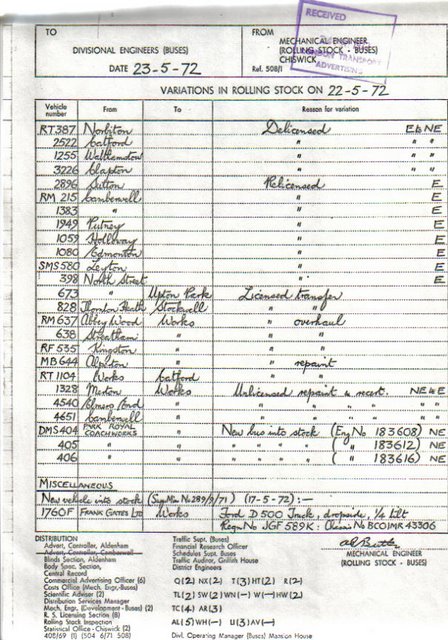 RECEIVED
TO
FROM
MECHANICAL ENGINEER
(ROLLING STOCK - BUSES)
CHISWICK
DIVISIONAL ENGINEERS (BUSES)
DATE 23-5-72
Ref. 508/1
TRANSPORT
ADVERTISING
VARIATIONS IN ROLLING STOCK ON 22-5-72
Vehicle number From To Reason for variation
RT.387 Norbiton Delicensed E to NE
2522 Catford " " "
1255 Walthamstow " " "
3226 Clapton " " "
2896 Sutton Relicensed E
RM 215 Camberwell " E
1383 " " E
1949 Putney " E
1059 Holloway " E
1080 Edmonton " E
SMS 580 Leyton " E
398 North Street " E
673 " Upton Park Licensed transfer
828 Thornton Heath Stockwell " "
RM 637 Abbey Wood Works " overhaul
638 Streatham " " "
RF 535 Kingston " " "
MB 644 Alperton " " repaint
RT 1104 Works Catford " "
1328 Merton Works Unlicensed repaint & recert. NE to E
4540 Elmers End " " " " " "
4651 Camberwell " " " " " "
DMS 404 PARK ROYAL COACHWORKS " New bus into stock (Eng No 183608) NE
405 " " " " " " ( " 183612) NE
406 " " " " " " ( " 183616) NE
MISCELLANEOUS
New vehicle into stock (Sup. Min No. 289/9/71) (17-5-72) :-
1760F FRANK GATES LTD Works Ford D 500 Truck, dropside,
Regn No JGF 589K : Chassis No BCO1MR 43306
DISTRIBUTION
Advert. Controller, Aldenham
Advert. Controller, Camberwell
Blinds Section, Aldenham
Body Spar. Section,
Central Record
Commercial Advertising Officer (6)
Costs Office (Mech. Engr.-Buses)
Scientific Adviser (2)
Distribution Services Manager
Mech. Engr. (Development - Buses) (2)
R. S. Licensing Section (8)
Rolling Stock Inspection
Statistical Office - Chiswick (2)
408/69 (1) (504 6/71 508)
Traffic Supt. (Buses)
Financial Research Officer
Schedules Supt. Buses
Traffic Auditor, Griffith House
District Engineers
Q(2) NX(2) T(3) HT(2) R(2)
TL(2) SW(2) WN(-) W(-) HW(2)
TC(4) AR(3)
AL(5) WH(-) U(3) AV(-)
Divl. Operating Manager (Buses) Mansion House
MECHANICAL ENGINEER
(ROLLING STOCK - BUSES)